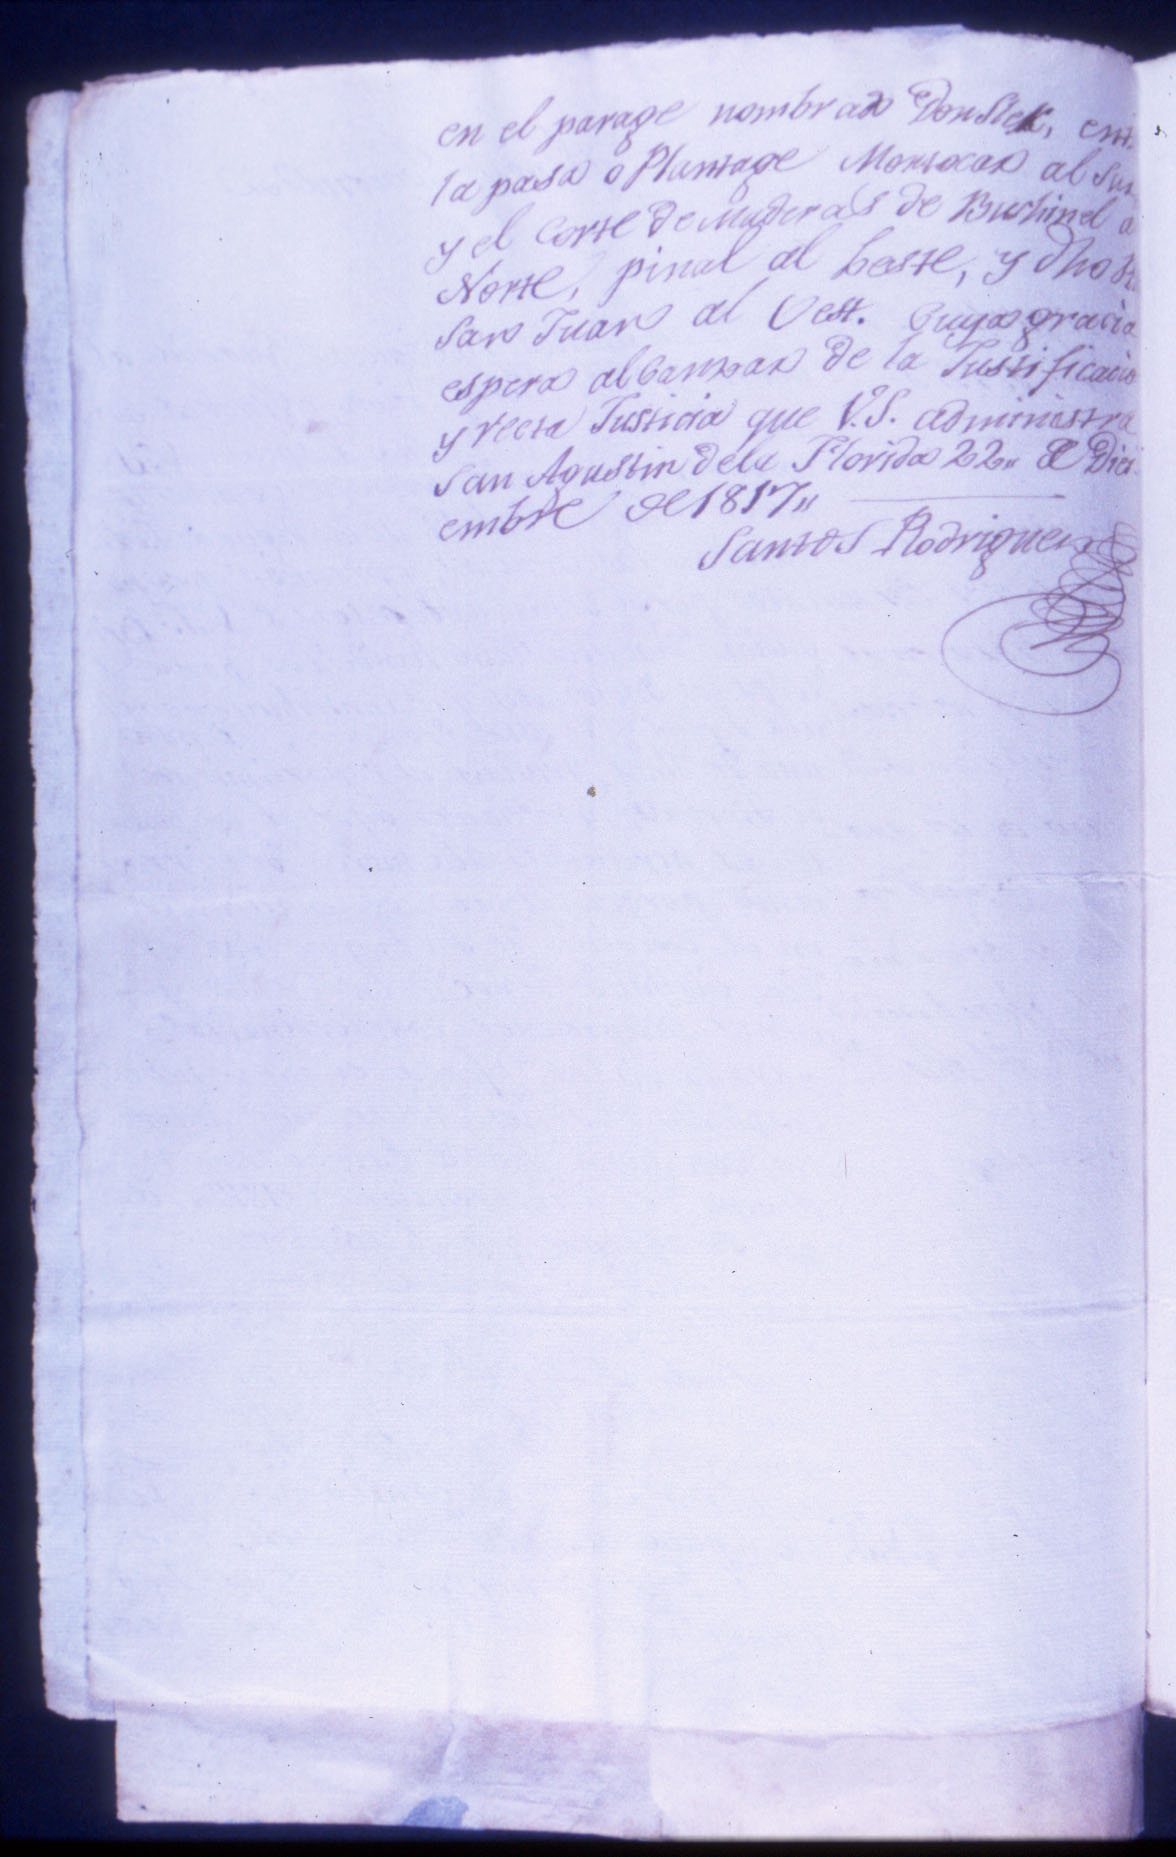 en el parage nombrado Donslek, ent
la pasa o Plantage Montocan al Sur
y el Corte de Maderas de Buchinel a
Norte, pinal al Leste, y dho R
San Juan al Oest. Cuya gracia
espera alcansar de la Justificacio
y recta Justicia que V.S. administra
San Agustin dela Florida 22,, de Dici
embre de 1817,,
Santos Rodriguez